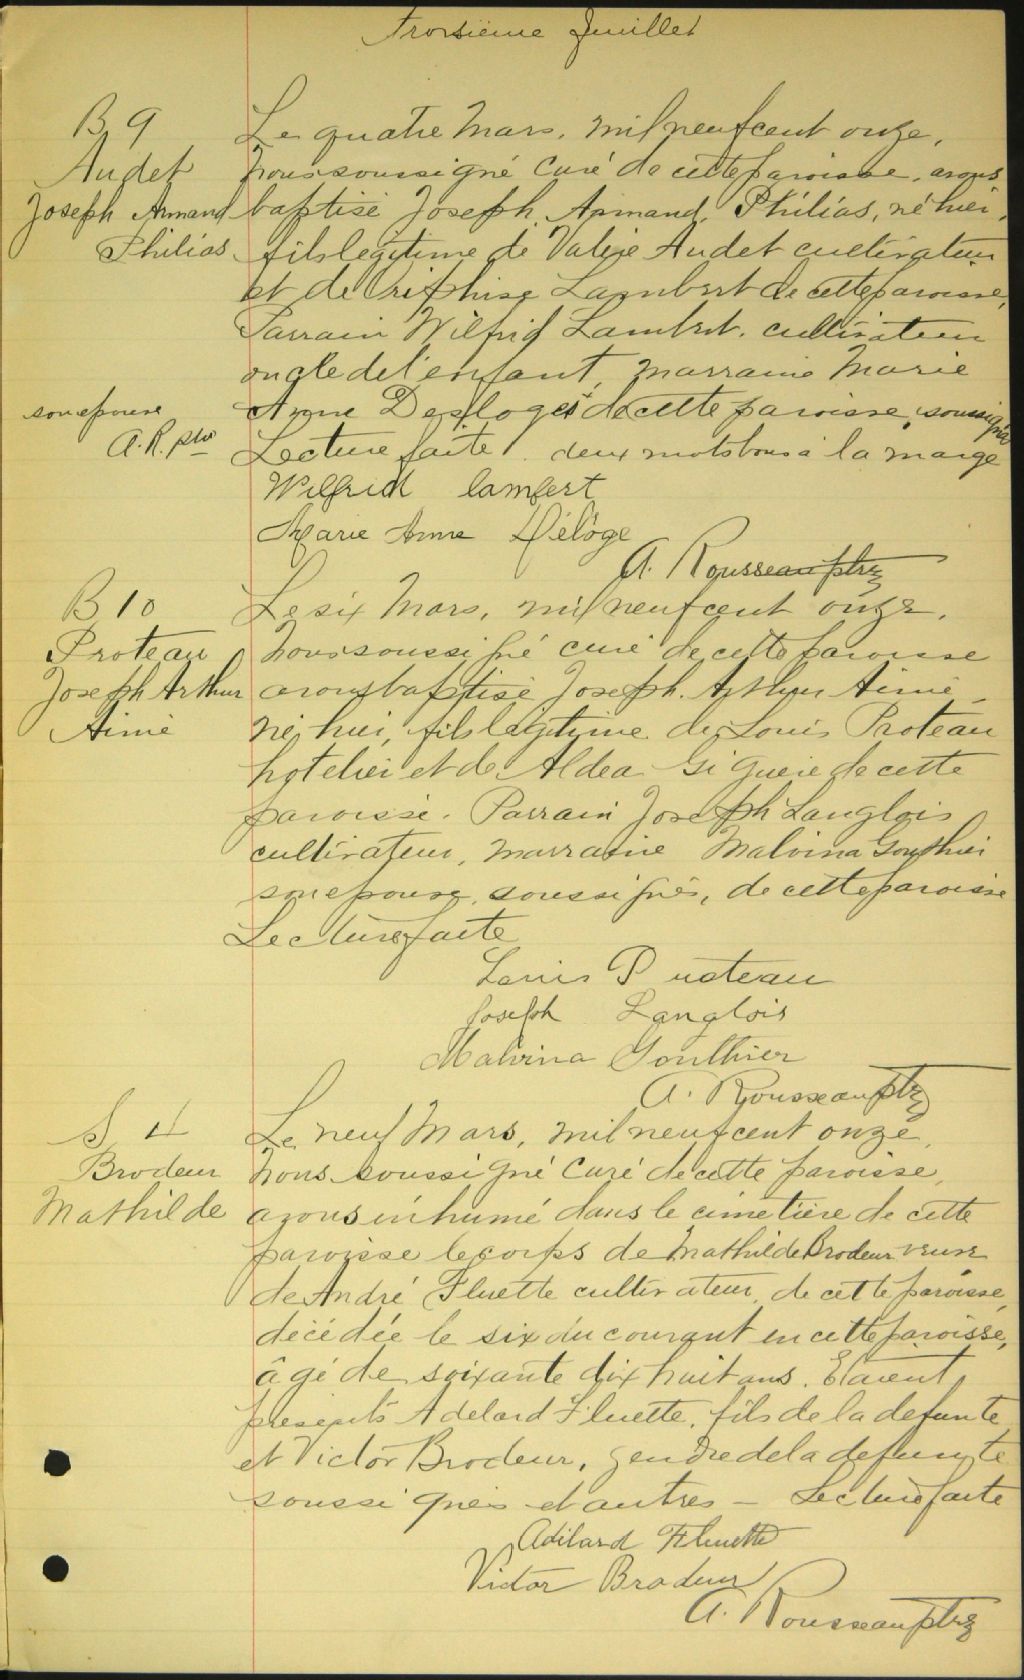 Troisième feuillet
B 9
Audet
Joseph Armand
Philias
Le quatre Mars, mil neuf cent onze,
nous soussigné curé de cette paroisse, avons
baptisé Joseph, Armand, Philias, né hier,
fils légitime de Valère Audet cultivateur
et de Lambert de cette paroisse,
Parrain Wilfrid Lambert, cultivateur
oncle de l'enfant, marraine Marie
Anne Desloges de cette paroisse, soussignés
son epouse
A. R. ptre
Lecture faite. deux mots bons à la marge
Wilfrid lambert
Marie Anne Déloge
A. Rousseau ptre
B 10
Proteau
Joseph Arthur
Aimé
Le six Mars, mil neuf cent onze,
nous soussigné curé de cette paroisse
avons baptisé Joseph. Arthur Aimé,
né hier, fils légitime de Louis Proteau
hotelier et de Aldea Giguere de cette
paroisse. Parrain Joseph Langlois
cultivateur, marraine Malvina Gouthier
son epouse, soussignés, de cette paroisse
Lecture faite
Louis Proteau
Joseph Langlois
Malvina Gouthier
A. Rousseau ptre
S 4
Brodeur
Mathilde
Le neuf Mars, mil neuf cent onze,
nous soussigné curé de cette paroisse,
avons inhumé dans le cimetière de cette
paroisse le corps de Mathilde Brodeur veuve
de André Fluette cultivateur, de cette paroisse,
décédée le six du courant en cette paroisse,
âgé de soixante dix huit ans. Etaient
presents Adelard Fluette, fils de la defunte
et Victor Brodeur, gendre de la defunte
soussignés et autres – Lecture faite
Adilard Fluette
Victor Brodeur
A. Rousseau ptre